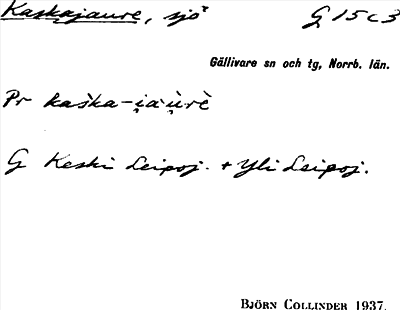 Kaskajaure, sjö G 15 c 3
Gällivare sn och tg, Norrb. län.
Pr kaška-i̯a·ùrè
G Keski Leipoj. + Yli Leipoj.
BJÖRN COLLINDER 1937.